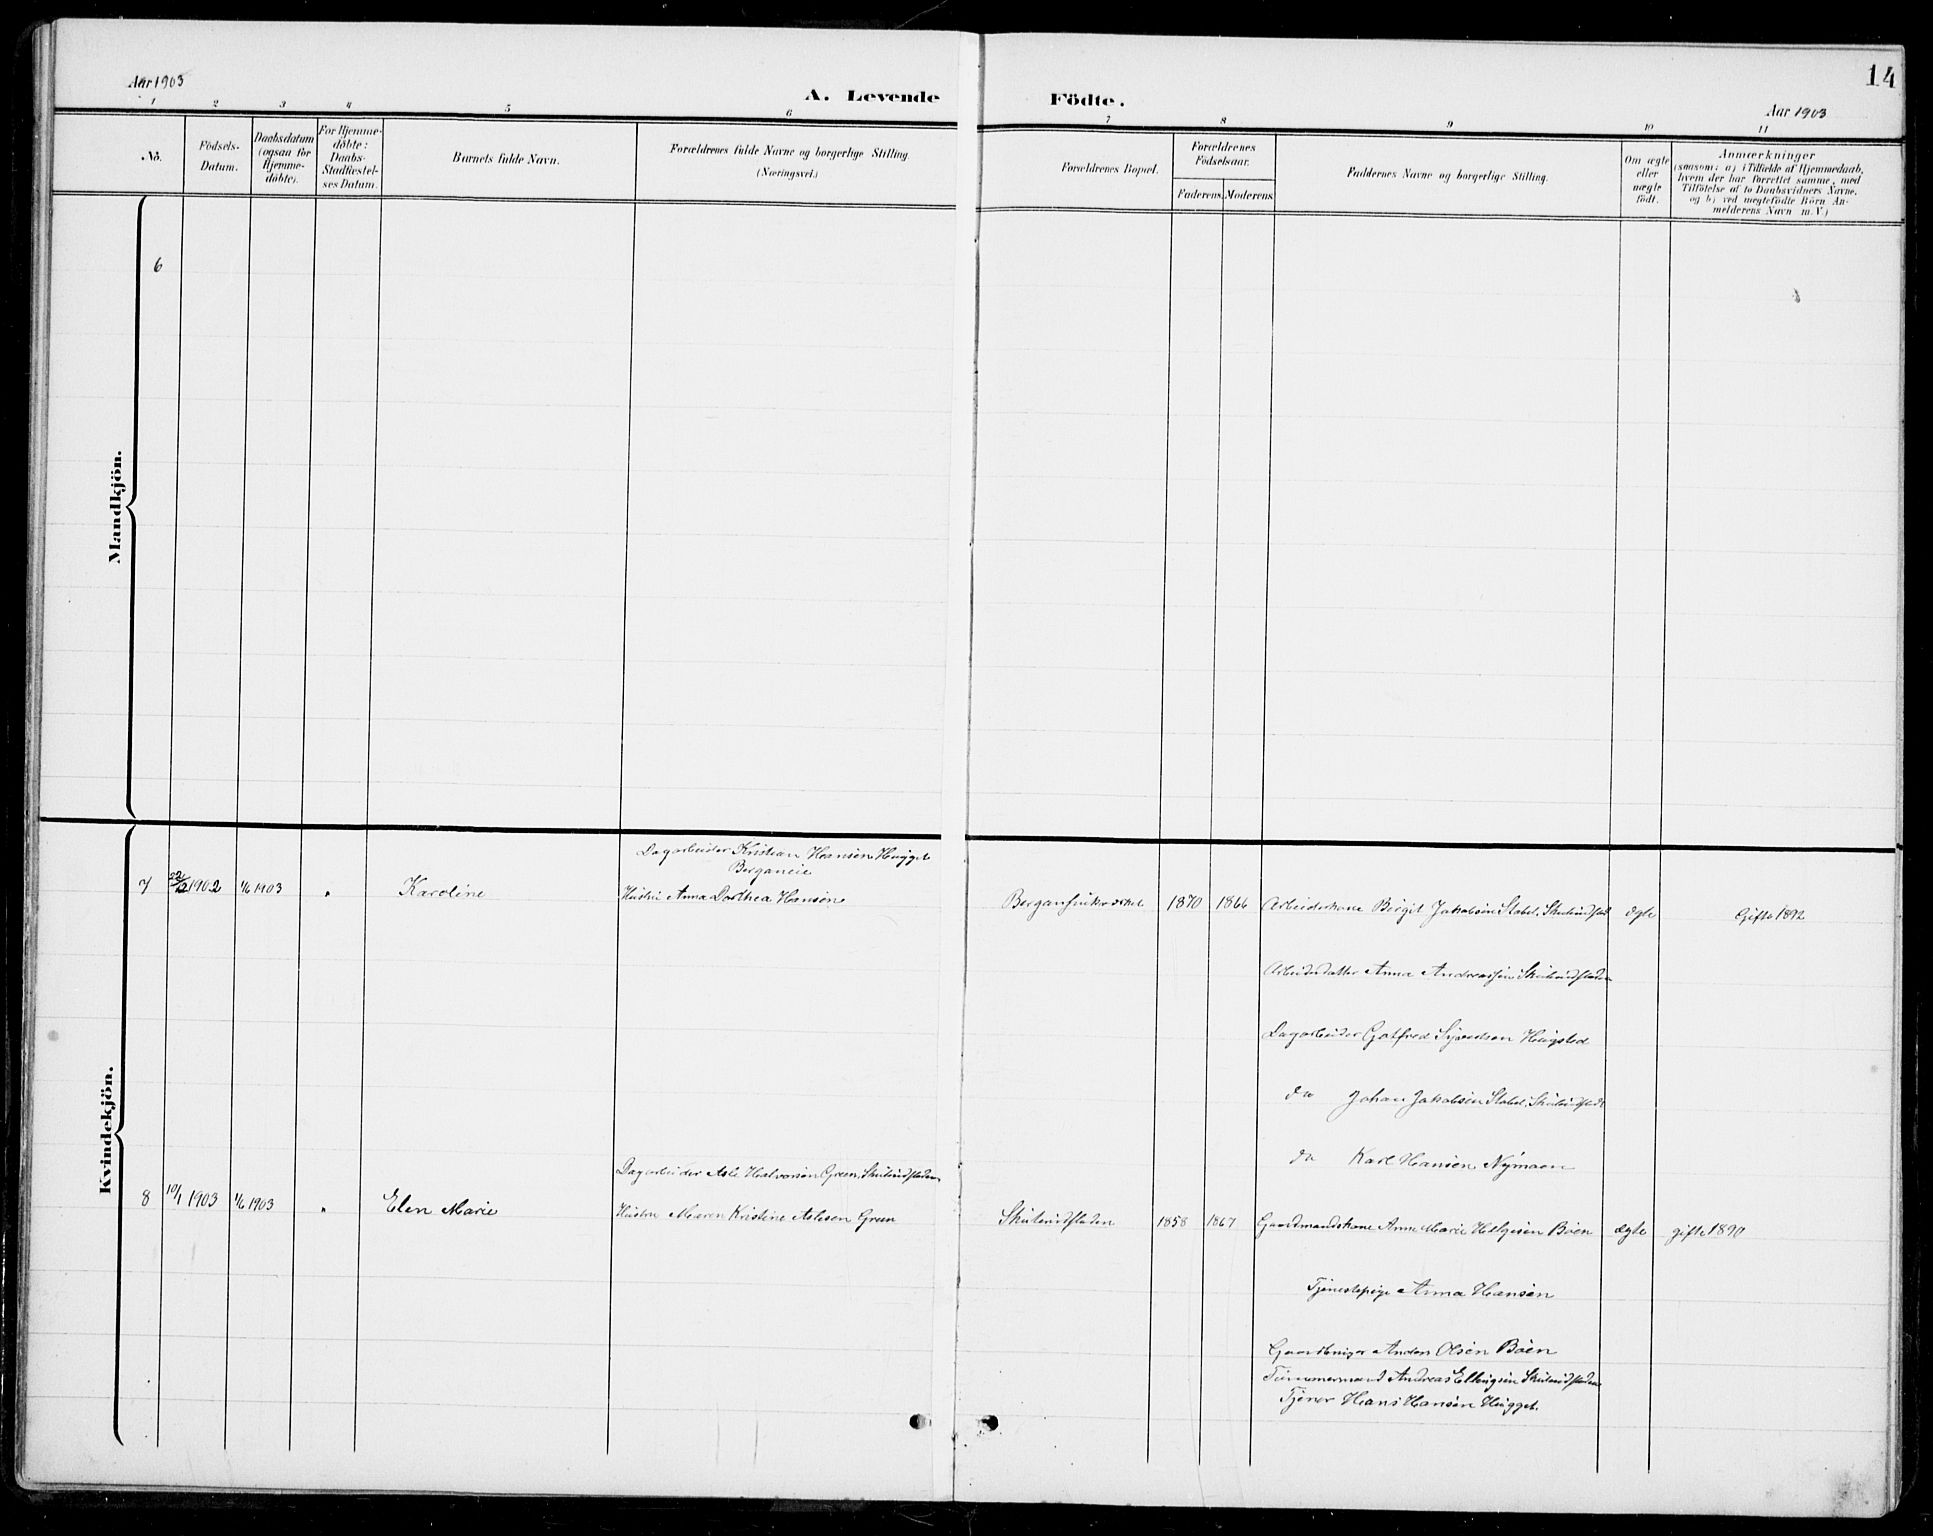 14
Aar 1903
A. Levende Födte.
Aar 1903
1 2 3 4 5 6 7 8 9 10 11
No.
Födsels-
Datum.
Daabsdatum
(ogsaa for
Hjemme-
döbte).
For Hjemme-
döbte:
Daabs-
Stadfæstel-
ses Datum.
Barnets fulde Navn.
Forældrenes fulde Navne og borgerlige Stilling
(Næringsvei.)
Forældrenes Bopæl.
Forældrenes
Födselsaar.
Faderens. Moderens.
Faddernes Navne og borgerlige Stilling.
Om ægte
eller
uægte
födt.
Anmærkninger
(saasom: a) i Tilfælde af Hjemmedaab,
hvem der har forrettet samme, med
Tilföielse af to Daabsvidners Navne,
og b) ved uegtefödte Börn An-
melderens Navn m. V.)
Mandkjön.
6
Kvindekjön.
Dagarbeider Kristian Hansen Hugget
Berganeie
7 22/12 1902 1/6 1903 " Karoline Hustru Anna Dorthea Hansen
1870 1866 Arbeiderkone Birgit Jakobsen Stabel, ægte Gifte 1892
Arbeiderdatter Anna Andreassen Skuterudflaten
Dagarbeider Gotfred Syvertsen
do Johan Jakobsen Stabel,
do Karl Hansen Nymoen
Dagarbeider Asle Halvorsen Green, Skuterudflaten
8 10/1 1903 1/6 1903 " Elen Marie Hustru Maren Kristine Aslesen Green
Skuterudflaten 1858 1867 Gaardmandskone Anne Marie Helgesen Böen ægte gifte 1890
Tjenestepige Anna Hansen
Gaardbruger Anders Olsen Böen
Tømmermand Andreas Ellingsen Skuterudflaten
Tjener Hans Hansen Hugget.